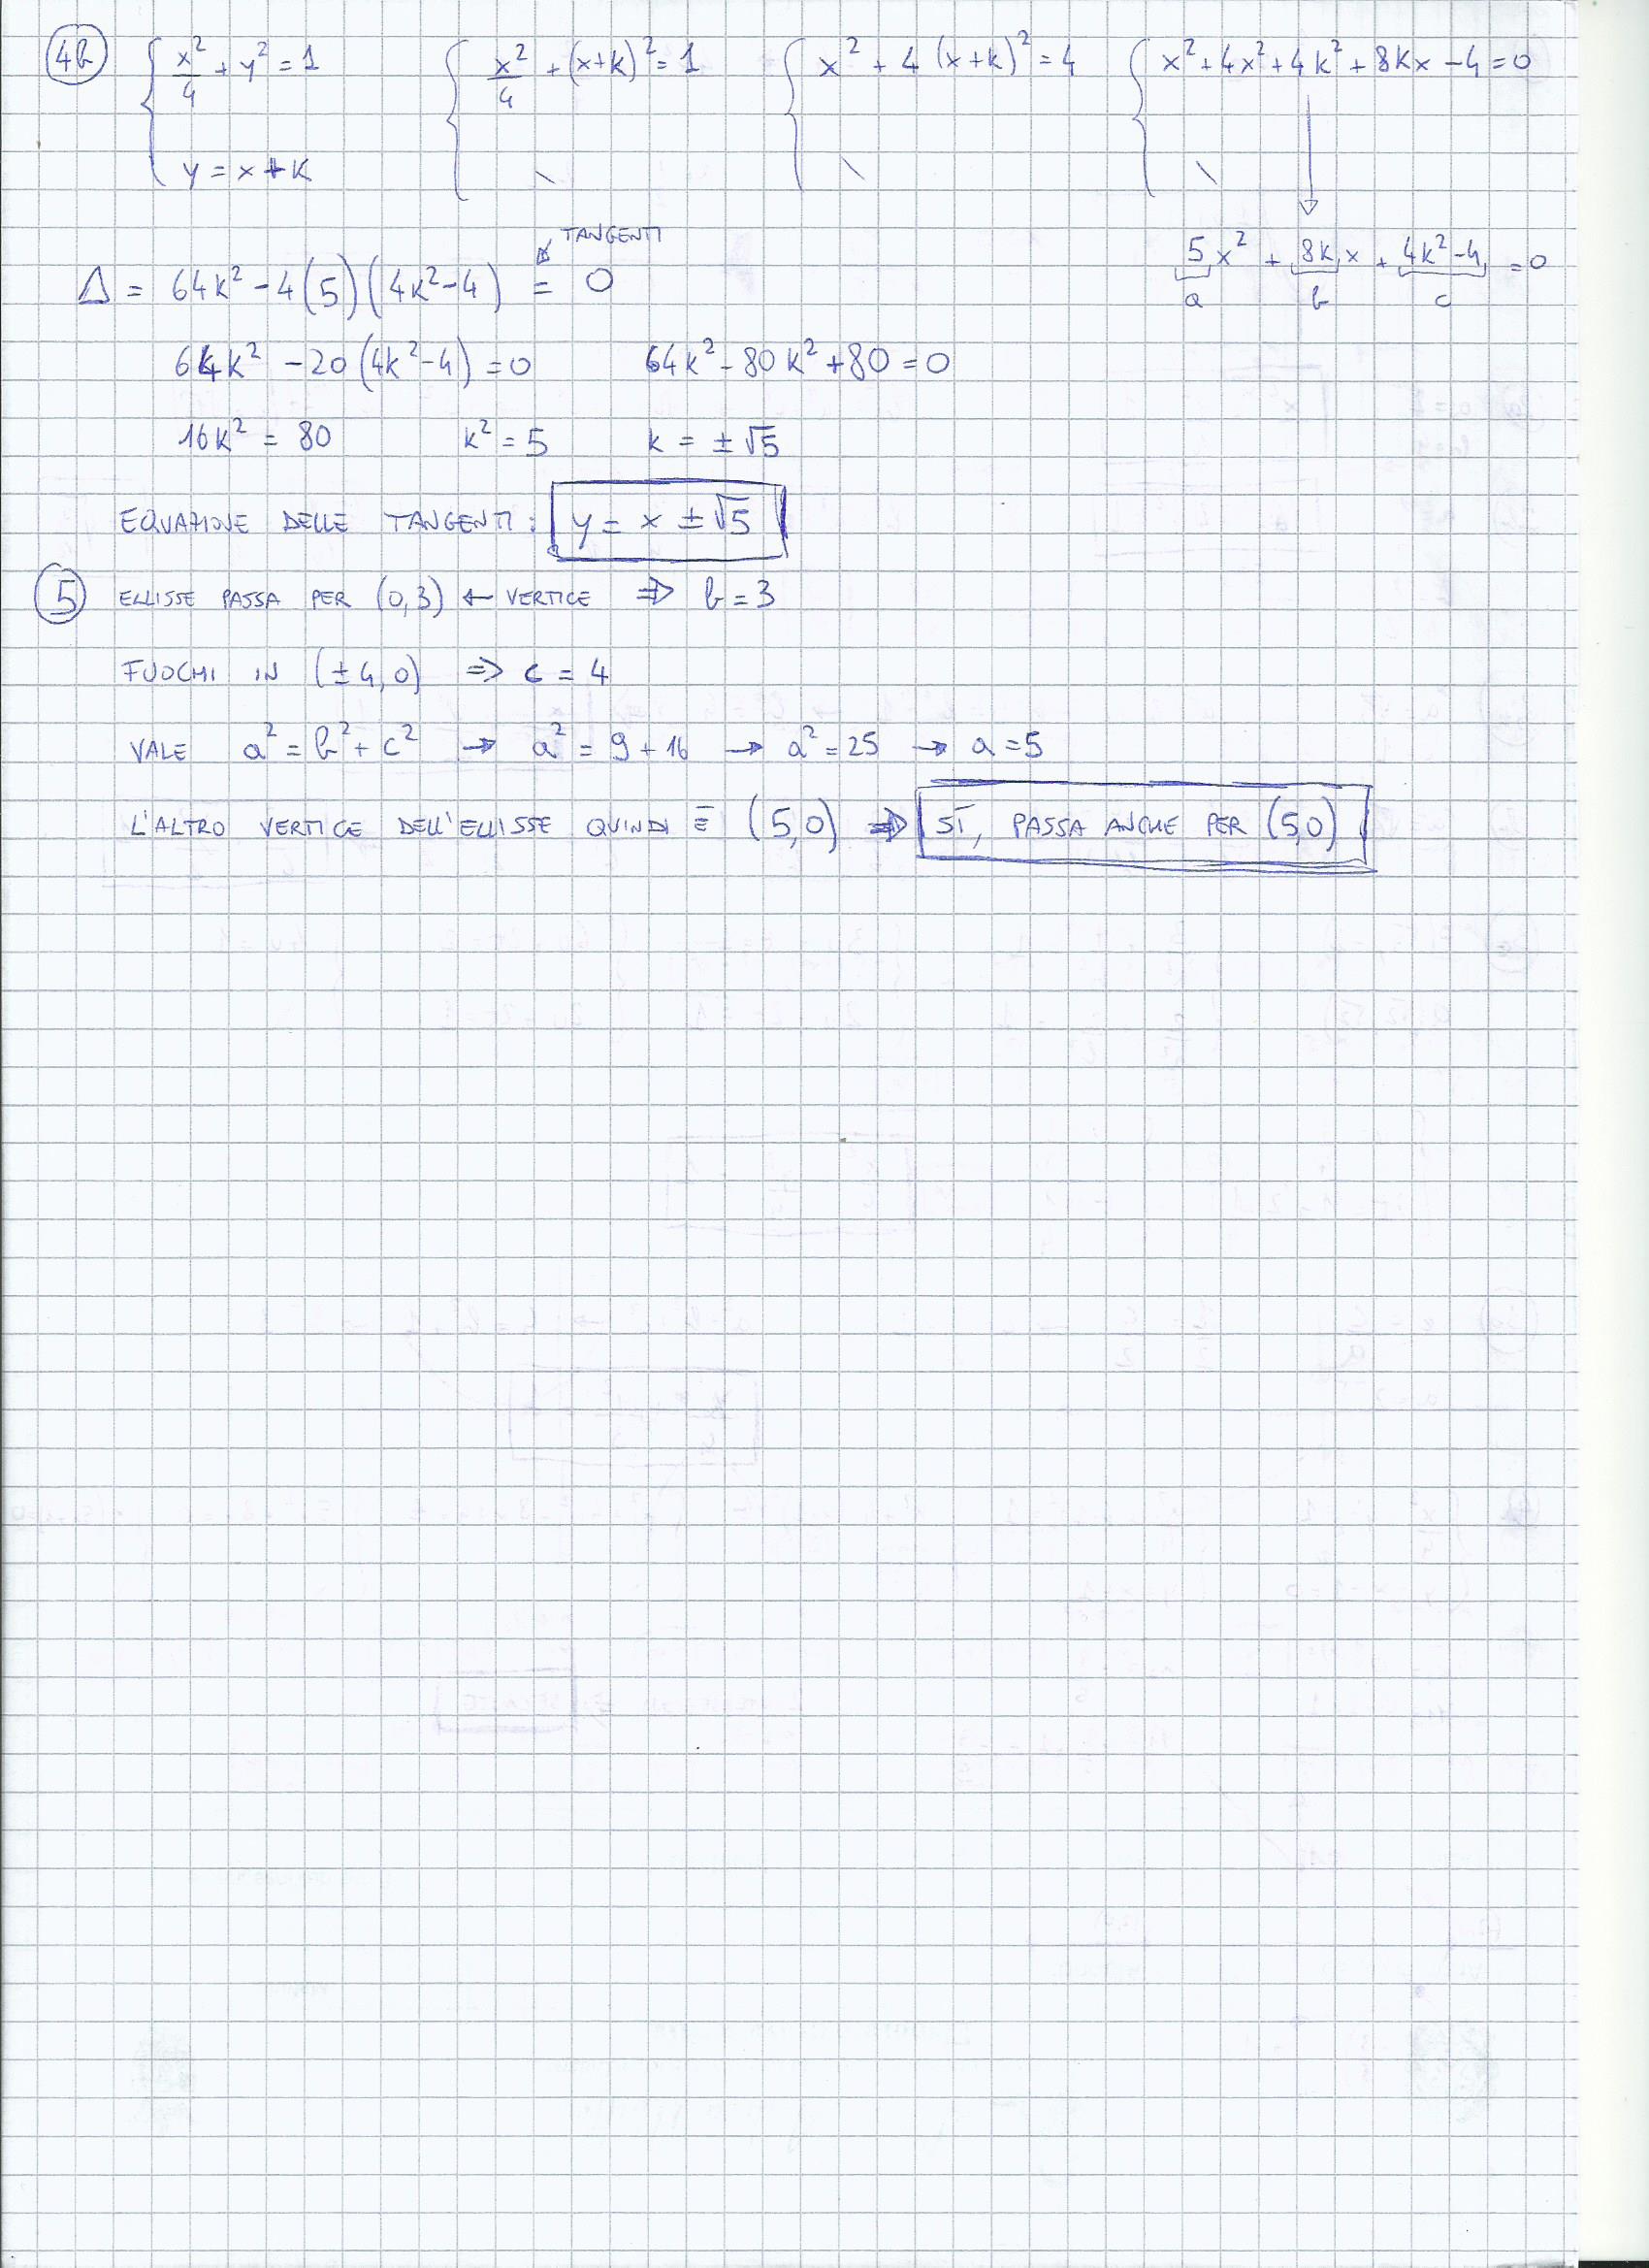 4b { x²/4 + y² = 1 { x²/4 + (x+k)² = 1 { x² + 4 (x+k)² = 4 { x² + 4x² + 4k² + 8kx - 4 = 0
y = x + k \ \ \
TANGENTI
5x² + 8kx + 4k²-4 = 0
a b c
Δ = 64k² - 4(5)(4k²-4) = 0
64k² - 20(4k²-4) = 0 64k² - 80k² + 80 = 0
16k² = 80 k² = 5 k = ±√5
EQUAZIONE DELLE TANGENTI: y = x ± √5
5 ELLISSE PASSA PER (0,3) ← VERTICE ⇒ b = 3
FUOCHI IN (±4,0) ⇒ c = 4
VALE a² = b² + c² → a² = 9 + 16 → a² = 25 → a = 5
L'ALTRO VERTICE DELL'ELLISSE QUINDI È (5,0) ⇒ SÌ, PASSA ANCHE PER (5,0)